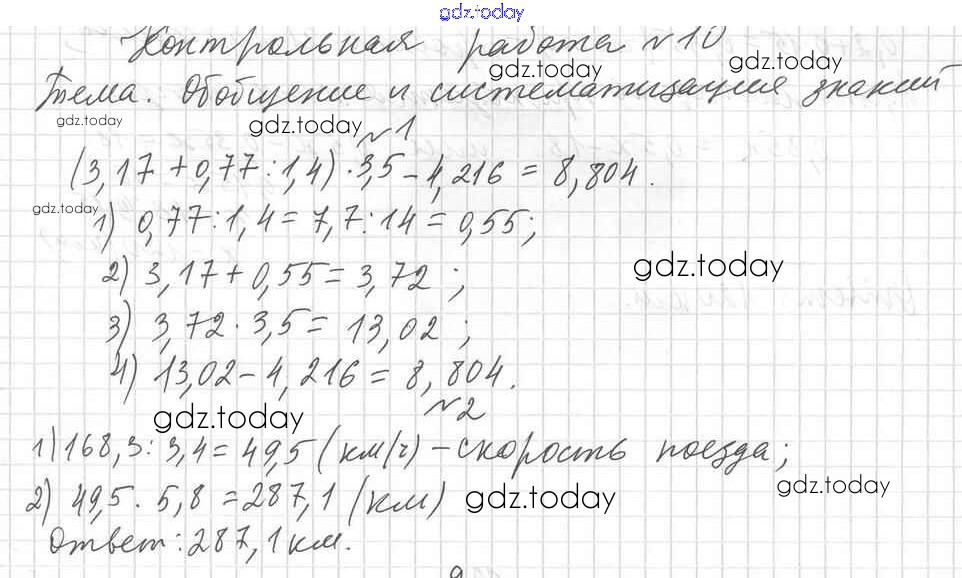 gdz.today
Контрольная работа №10
gdz.today gdz.today
Тема. Обобщение и систематизация знаний
gdz.today gdz.today
№1
(3,17+0,77:1,4)·3,5-4,216=8,804.
gdz.today
1) 0,77:1,4=7,7:14=0,55;
gdz.today
2) 3,17+0,55=3,72;
3) 3,72·3,5=13,02;
4) 13,02-4,216=8,804.
gdz.today №2
1) 168,3:3,4=49,5 (км/ч) - скорость поезда;
gdz.today
2) 49,5·5,8=287,1 (км) gdz.today
Ответ: 287,1 км.